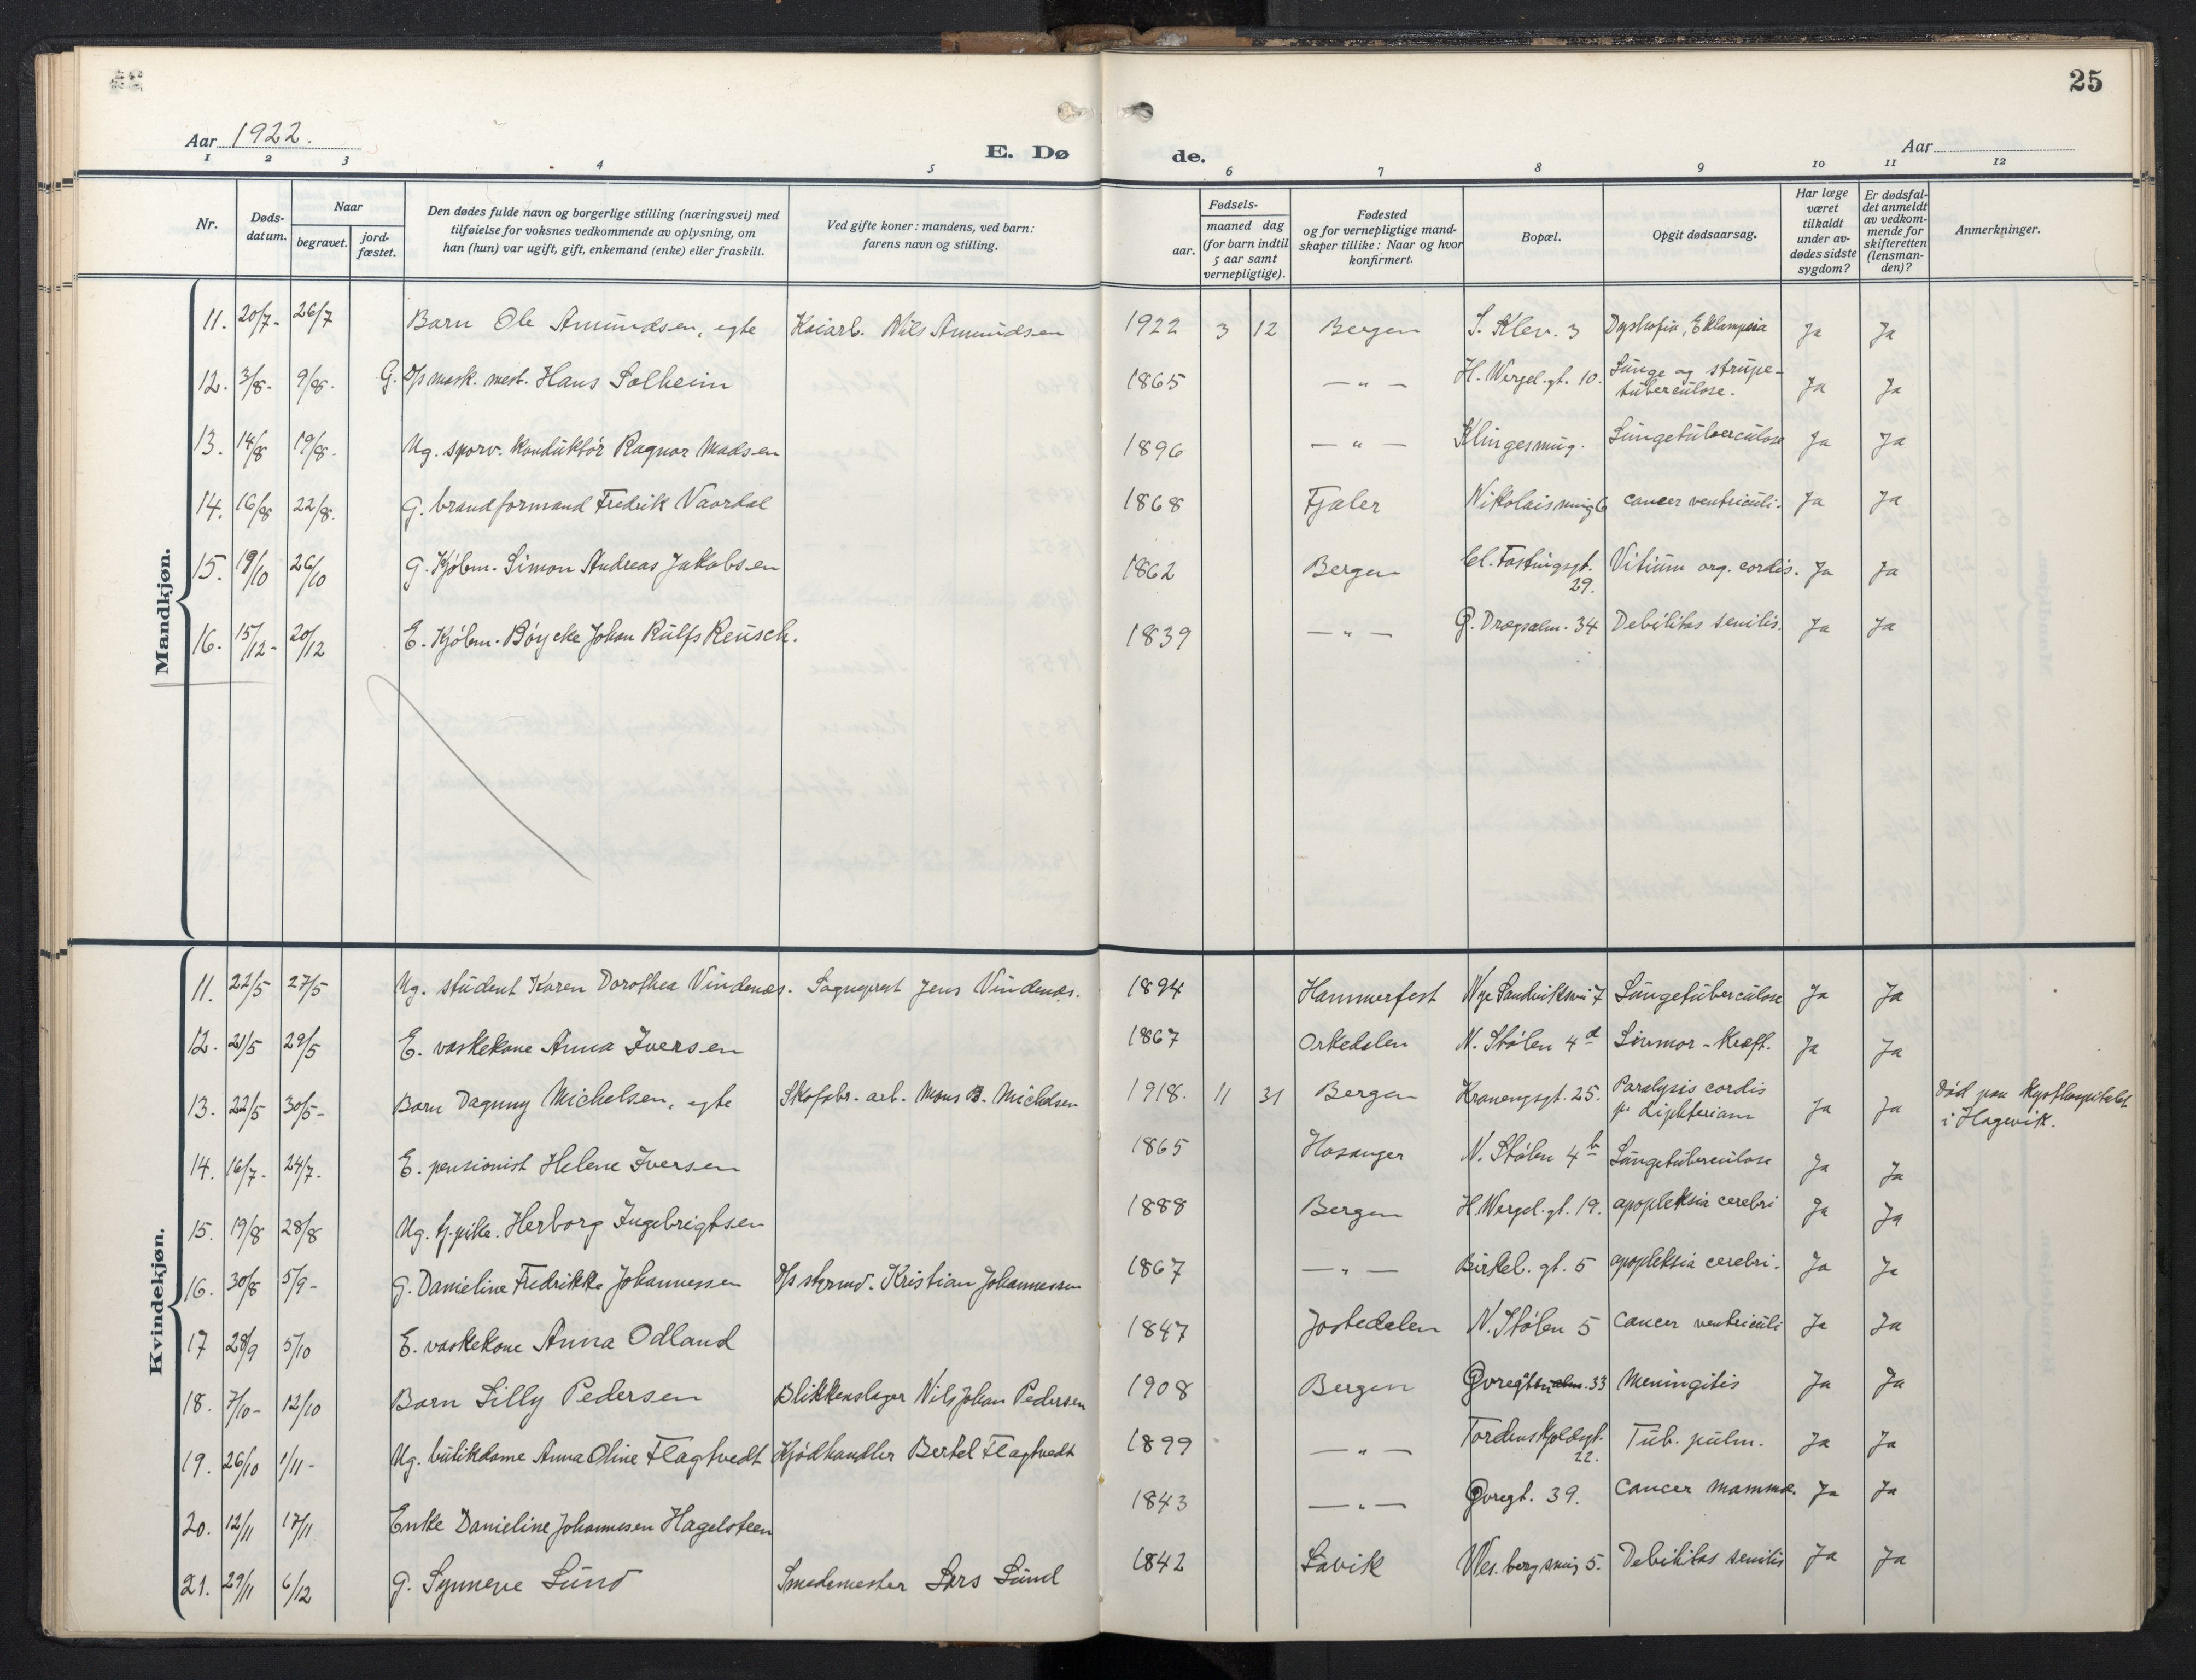 25
Aar 1922.
E. Dø
de.
Aar
1 2 3 4 5 6 7 8 9 10 11 12
Nr.
Døds-
datum.
Naar
begravet.
jord-
fæstet.
Den dødes fulde navn og borgerlige stilling (næringsvei) med
tilføielse for voksnes vedkommende av oplysning, om
han (hun) var ugift, gift, enkemand (enke) eller fraskilt.
Ved gifte koner: mandens, ved barn:
farens navn og stilling.
Fødsels-
aar.
maaned dag
(for barn indtil
5 aar samt
vernepligtige).
Fødested
og for vernepligtige mand-
skaper tillike: Naar og hvor
konfirmert.
Bopæl.
Opgit dødsaarsag.
Har læge
været
tilkaldt
under av-
dødes sidste
sygdom?
Er dødsfal-
det anmeldt
av vedkom-
mende for
skifteretten
(lensman-
den)?
Anmerkninger.
Mandkjøn.
11. 20/7- 26/7 Barn Ole Amundsen, egte Kaiarb. Nils Amundsen 1922 3 12 Bergen S. Klev. 3 Dystrofia, Eklampsia Ja Ja
12. 3/8- 9/8- G. D/s mask. mest. Hans Solheim 1865 — " — H. Wergel. gt. 10. Lunge og strupe-
tuberculose. Ja Ja
13. 14/8 19/8- Ug. sporv. konduktør Ragnar Madsen 1896 — " — Klingesmug. Lungetuberculose Ja Ja
14. 16/8 22/8. G. brandformand Fredrik Vaardal 1868 Fjaler Nikolaismug 6 cancer ventriculi. Ja Ja
15. 19/10 26/10 G. Kjøbm. Simon Andreas Jakobsen 1862 Bergen Cl. Fastingsgt.
29. Vitium org. cordis. Ja Ja
16. 15/12- 20/12 E. Kjøbm. Bøycke Johan Rulfs Reusch. 1839 — " — Ø. Dregsalm. 34 Debilitas senilis. Ja Ja
Kvindekjøn.
11. 22/5 27/5 Ug. student Karen Dorothea Vindenæs. Sogneprest Jens Vindenæs. 1894 Hammerfest Nye Sandviksvei 7 Lungetuberculose Ja Ja
12. 21/5 29/5 E. vaskekone Anna Iversen 1867 Orkedalen N. Stølen 4a Livmor-kræft. Ja Ja
13. 22/5 30/5- Barn Dagny Michelsen, egte Skofabr. arb. Mons B. Michelsen 1918. 11 31 Bergen Kronengsgt. 25. Paralysis cordis
p. diphteriam Ja Ja Død paa Kysthospitalet
i Hagevik.
14. 16/7- 24/7- E. pensionist Helene Iversen 1865 Hosanger N. Stølen 4b Lungetuberculose Ja Ja
15. 19/8 28/8 Ug. tj.pike. Herborg Ingebrigtsen 1888 Bergen H. Wergel. gt. 19. apopleksia cerebri Ja Ja
16. 30/8 5/9- G. Danieline Fredrikke Johannessen D/s styrmd. Kristian Johannessen 1867 — " — Birkeb. gt. 5 apopleksia cerebri. Ja Ja
17 28/9 5/10 E. vaskekone Anna Odland 1847 Jostedalen N. Stølen 5 cancer ventriculi Ja Ja
18. 7/10- 12/10 Barn Lilly Pedersen Blikkenslager Nils Johan Pedersen 1908 Bergen Øvregt. 33 Meningitis Ja Ja
19. 26/10 1/11- Ug. butikdame Anna Oline Flagtvedt Kjødhandler Bertel Flagtvedt 1899 — " — Tordenskjoldsgt.
22. Tub. pulm. Ja Ja
20. 12/11 17/11 Enke Danieline Johannesen Hagelsteen 1843 — " — Øvregt. 39. cancer mammæ. Ja Ja
21. 29/11 6/12 G. Synneve Lund Smedemester Lars Lund 1842 Lavik Wes. bergsmug 5. Debilitas senilis Ja Ja